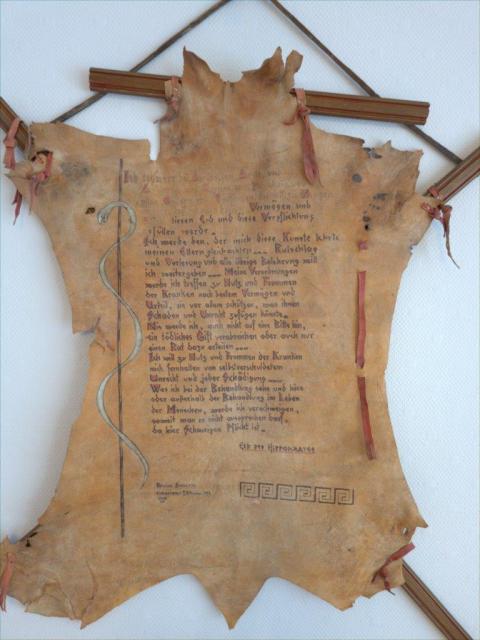 Ich schwöre
Vermögen und
diesen Eid und diese Verpflichtung
erfüllen werde.
Ich werde den, der mich diese Kunst lehrte
meinen Eltern gleichachten ... Ratschlag
und Vorlesung und alle übrige Belehrung will
ich weitergeben ... Meine Verordnungen
werde ich treffen zu Nutz und Frommen
der Kranken nach bestem Vermögen und
Urteil, sie vor allem schützen, was ihnen
Schaden und Unrecht zufügen könnte.
Nie werde ich, auch nicht auf eine Bitte hin,
ein tödliches Gift verabreichen oder auch nur
einen Rat dazu erteilen ...
Ich will zu Nutz und Frommen der Kranken
mich fernhalten von selbstverschuldetem
Unrecht und jeder Schädigung ...
Was ich bei der Behandlung sehe und höre
oder außerhalb der Behandlung im Leben
der Menschen, werde ich verschweigen,
soweit man es nicht aussprechen darf,
da hier Schweigen Pflicht ist.
Eid des Hippokrates